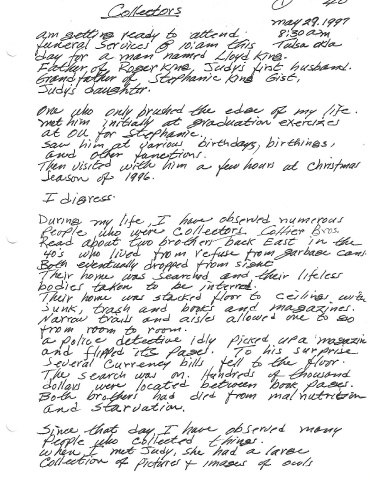 Collectors
May 29, 1997
am getting ready to attend 8:30am
funeral services @ 10:am this Tulsa Okla
day for a man named Lloyd King.
Father of Roger King, Judy's first husband.
Grandfather of Stephanie King Gist,
Judy's daughter.
One who only brushed the edge of my life.
met him initially at graduation exercises
at OU for Stephanie.
saw him at various birthdays, birthings,
and other functions.
Then visited with him a few hours at Christmas
season of 1996.
I digress.
During my life, I have observed numerous
People who were collectors. Collier Bros.
Read about two brothers back East in the
40's who lived from refuse from garbage cans.
Both eventually dropped from sight
Their home was searched and their lifeless
bodies taken to be interred.
Their home was stacked floor to ceiling with
junk, trash and books and magazines.
Narrow trail and aisles allowed one to go
from room to room.
a police detective idly picked up a magazine
and flipped its pages. To his surprise
several currency bills fell to the floor.
The search was on. Hundreds of thousand
dollars were located between book pages.
Both brothers had died from malnutrition
and starvation.
Since that day I have observed many
People who collected things.
When I met Judy, she had a large
collection of pictures & images of owls